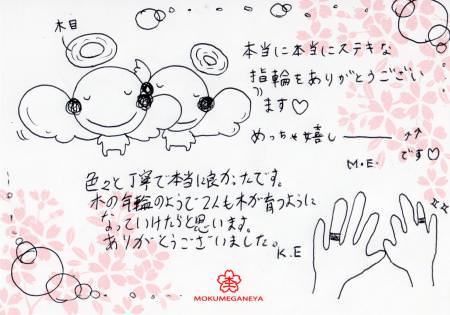 木目
本当に本当にステキな
指輪をありがとうござい
ます♡
めっちゃ嬉し――――
です♡
M.E.
色々と丁寧で本当に良かったです。
木の年輪のようで2人も木が育つように
なっていけたらと思います。
ありがとうございました。
K.E
MOKUMEGANEYA